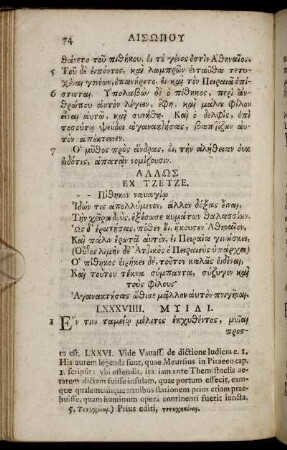 74 ΑΙΣΩΠΟΥ
θάνετο τοῦ πιθήκου, εἰ τὸ γένος ἐστὶν Ἀθηναῖος.
5 Τοῦ δὲ εἰπόντος, καὶ λαμπρῶν ἐνταῦθα τετυ-
χέναι γονέων, ἐπανήρετο, εἰ καὶ τὸν Πειραιᾶ ἐπί-
6 σταται. Ὑπολαβὼν δὲ ὁ πίθηκος, περὶ ἀν-
θρώπου αὐτὸν λέγειν, ἔφη, καὶ μάλα φίλον
εἶναι αὐτῷ, καὶ συνήθη. Καὶ ὁ δελφὶς, ἐπὶ
τοσούτῳ ψεύδει ἀγανακτήσας, βαπτίζων αὐτὸν
ἀπέκτεινεν.
7 Ὁ μῦθος πρὸς ἄνδρας, οἳ, τὴν ἀλήθειαν οὐκ
εἰδότες, ἀπατᾷν νομίζουσιν.
ΑΛΛΩΣ
ΕΚ ΤΖΕΤΖΕ.
- - Πίθηκον ναυαγίῳ
Ἰδών τις ἀπολλύμενον, ἄλλον δόξας εἶναι,
Τὴν χεῖρα διδοὺς, ἐξέσωσε κυμάτων θαλασσίων.
Ὡς δ' ἐρωτήσας, πόθεν εἶ, ἤκουσεν Ἀθηναῖον,
Καὶ πάλιν ἐρωτᾷ αὐτὸν, εἰ Πειραῖα γινώσκει,
(Οὗτος λιμὴν δὲ Ἀττικὸς ὁ Πειραιεὺς ὑπάρχει)
Ὁ πίθηκος εἰρήκει δὲ, τοῦτον καλῶς εἰδέναι,
Καὶ τούτου τέκνα σύμπαντα, σύζυγον καὶ
τοὺς φίλους·
Ἀγανακτήσας ὦθισε μᾶλλον αὐτὸν πνιγῆναι.
LXXXVIIII. ΜΥΙΑΙ.
1 Ἔν τινι ταμείῳ μέλιτος ἐκχυθέντος, μυῖαι
προσ-
ta est. LXXVI. Vide Vavass. de dictione ludicra c. 1.
His autem legenda sunt, quae Meursius in Piraeeo cap.
1. scripsit: ubi ostendit, ita iam ante Themistoclis ae-
tatem dictam fuisse insulam, quae portum effecit, eam-
que qualemcumque navibus stationem priua etiam prae-
buisse, quam manorum opera continenti fuerit iuncta.
5. Τετυχηκέναι) Prius editi, τετυχηκέναι.